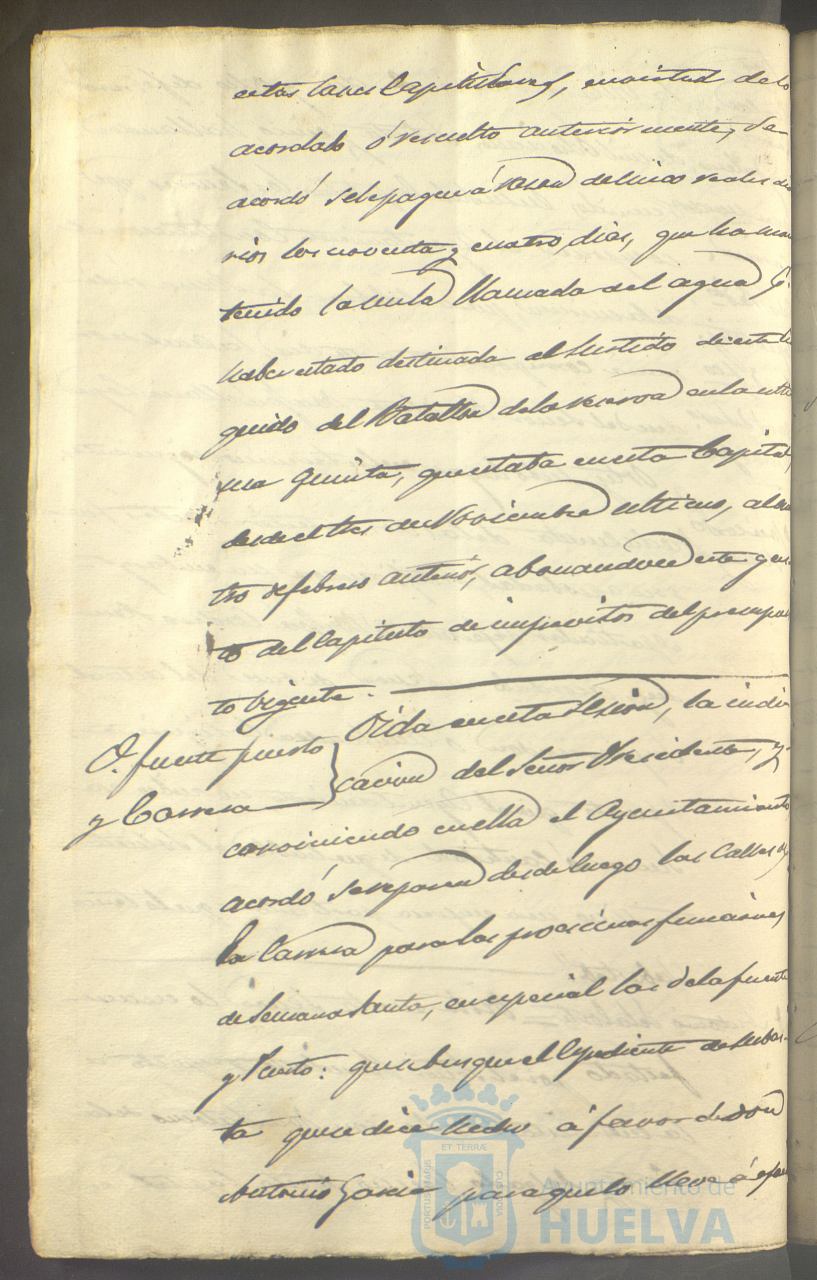 estas Casas Capitulares, en virtud de lo
acordado ó resuelto anteriormente, se
acordó se le pague á razon de cinco reales dia
rios los noventa y cuatro dias, que ha man
tenido la mula llamada del agua
haber estado destinada al surtido de
guido del Batallon de la reserva en la ulti
ma quinta, que estaba en esta Capital,
desde el tres de Noviembre ultimo, al cua
tro de febrero anterior, abonandose este gas
to del Capitulo de imprevistos del presupues
to vigente.
fuente puerto
y Carrera
Oida en esta sesion, la indi
cacion del Señor Presidente, y
conviniendo en ella el Ayuntamiento
acordó se reparen desde luego las Calles de
la Carrera para las procsimas funciones
de Semana Santa, en especial las de la fuente
y Puerto: que se busque el Espediente de subas
ta que se dice hecho á favor de Don
Antonio Garcia para que lo lleve á
PORTUS MARIS
ET TERRÆ
CUSTODIA
Ayuntamiento de
HUELVA